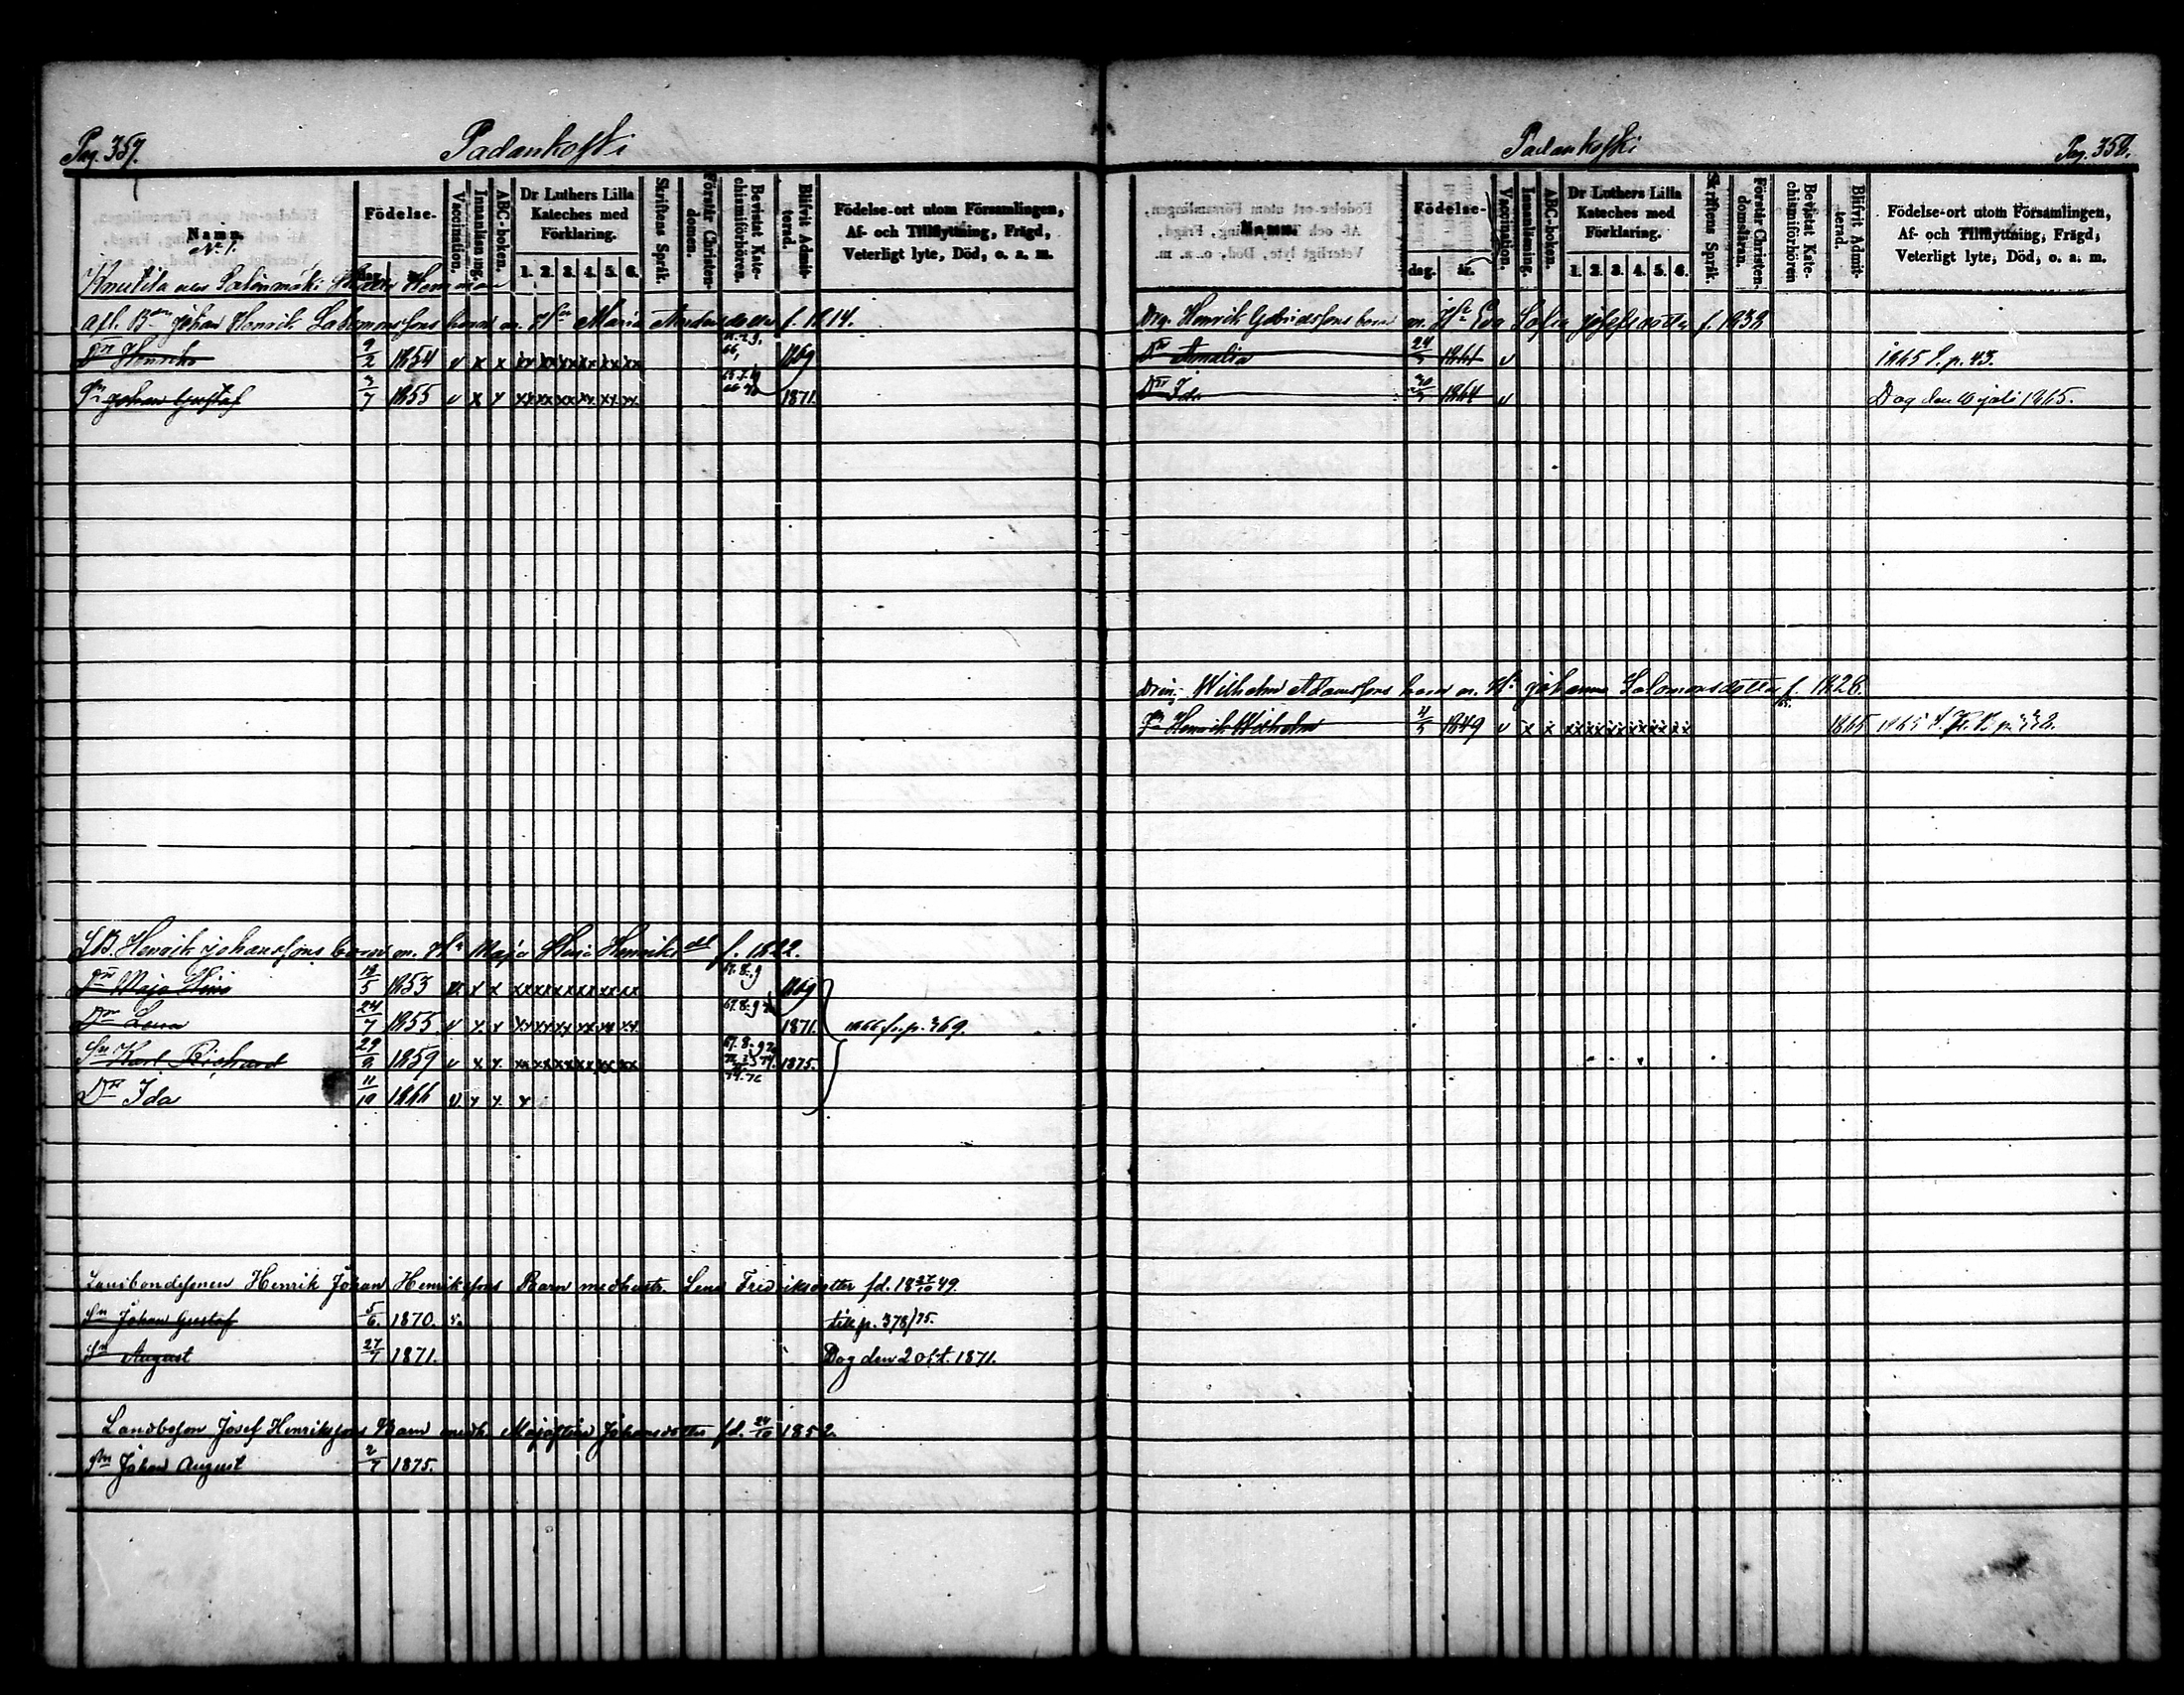 Pag. 357.
Padankoski
Namn.
No 1.
Födelse-
dag.
år.
Vaccination.
Innanläsning.
ABC-boken.
Dr Luthers Lilla
Kateches med
Förklaring.
1. 2. 3. 4. 5. 6.
Skriftens Språk.
Förstår Christen-
domen.
Bevistat Kate-
chismiförhören.
Blifvit Admit-
terad.
Födelse-ort utom Församlingen,
Af- och Tillflyttning, Frägd,
Veterligt lyte, Död, o. a. m.
Knutila
afl. Bon Johan Henrik Salomonssons barn m. Hu Maria f. 1814.
Dr Henrika 9/2 1854 v x x xx xx xx xx xx xx 1869
Sn Johan Gustaf 3/7 1855 v x x xx xx xx xx xx xx 1871.
S.B. Henrik Johanssons barn m. Hu Maja Stina Henriksdtr f. 1822.
Dr Maja Stina 18/5 1853 x x xx xx xx xx xx xx 67.8.9 1869
Dr Lena 24/7 1855 v x x xx xx xx xx xx xx 1871. 1866 fr. p. 369.
Sn Karl Richard 29/9 1859 v x x xx xx xx xx xx xx 1875.
Dr Ida 11/10 1866 v x x x
Landbondesonen Henrik Johan Henrikssons Barn med hustr. Lena Fredriksdotter fd. 18 27/10 49.
Sn Johan Gustaf 5/6. 1870. till p. 378/75.
Sn August 27/7 1871. Dog den 2 Okt. 1871.
Landboson Josef Henrikssons Barn medh. Maja Stina Johansdotter fd. 24/10 1852.
Sn Johan August 2/7 1875.
Padankoski
Pag. 358.
Namn.
Födelse-
dag. år.
Vaccination.
Innanläsning.
ABC-boken.
Dr Luthers Lilla
Kateches med
Förklaring.
1. 2. 3. 4. 5. 6.
Skriftens Språk.
Förstår Christen-
domsläran.
Bevistat Kate-
chismiförhören
Blifvit Admit-
terad.
Födelse-ort utom Församlingen,
Af- och Tillflyttning, Frägd,
Veterligt lyte, Död, o. a. m.
Drg. Henrik Gabrielssons barn m. Hu Eva Sofia Josefsdotter f. 1838
Dr Amalia 1861 v 1865 t. p. 43.
Dr Ida 1864 v Dog den 10 juli 1865.
Dreng Wilhelm Adamssons barn m. Hu Johanna Salomonsdotter f. 1828.
Sn Henrik Wilhelm 4/5 1849 v x x xx xx xx xx xx xx 1865